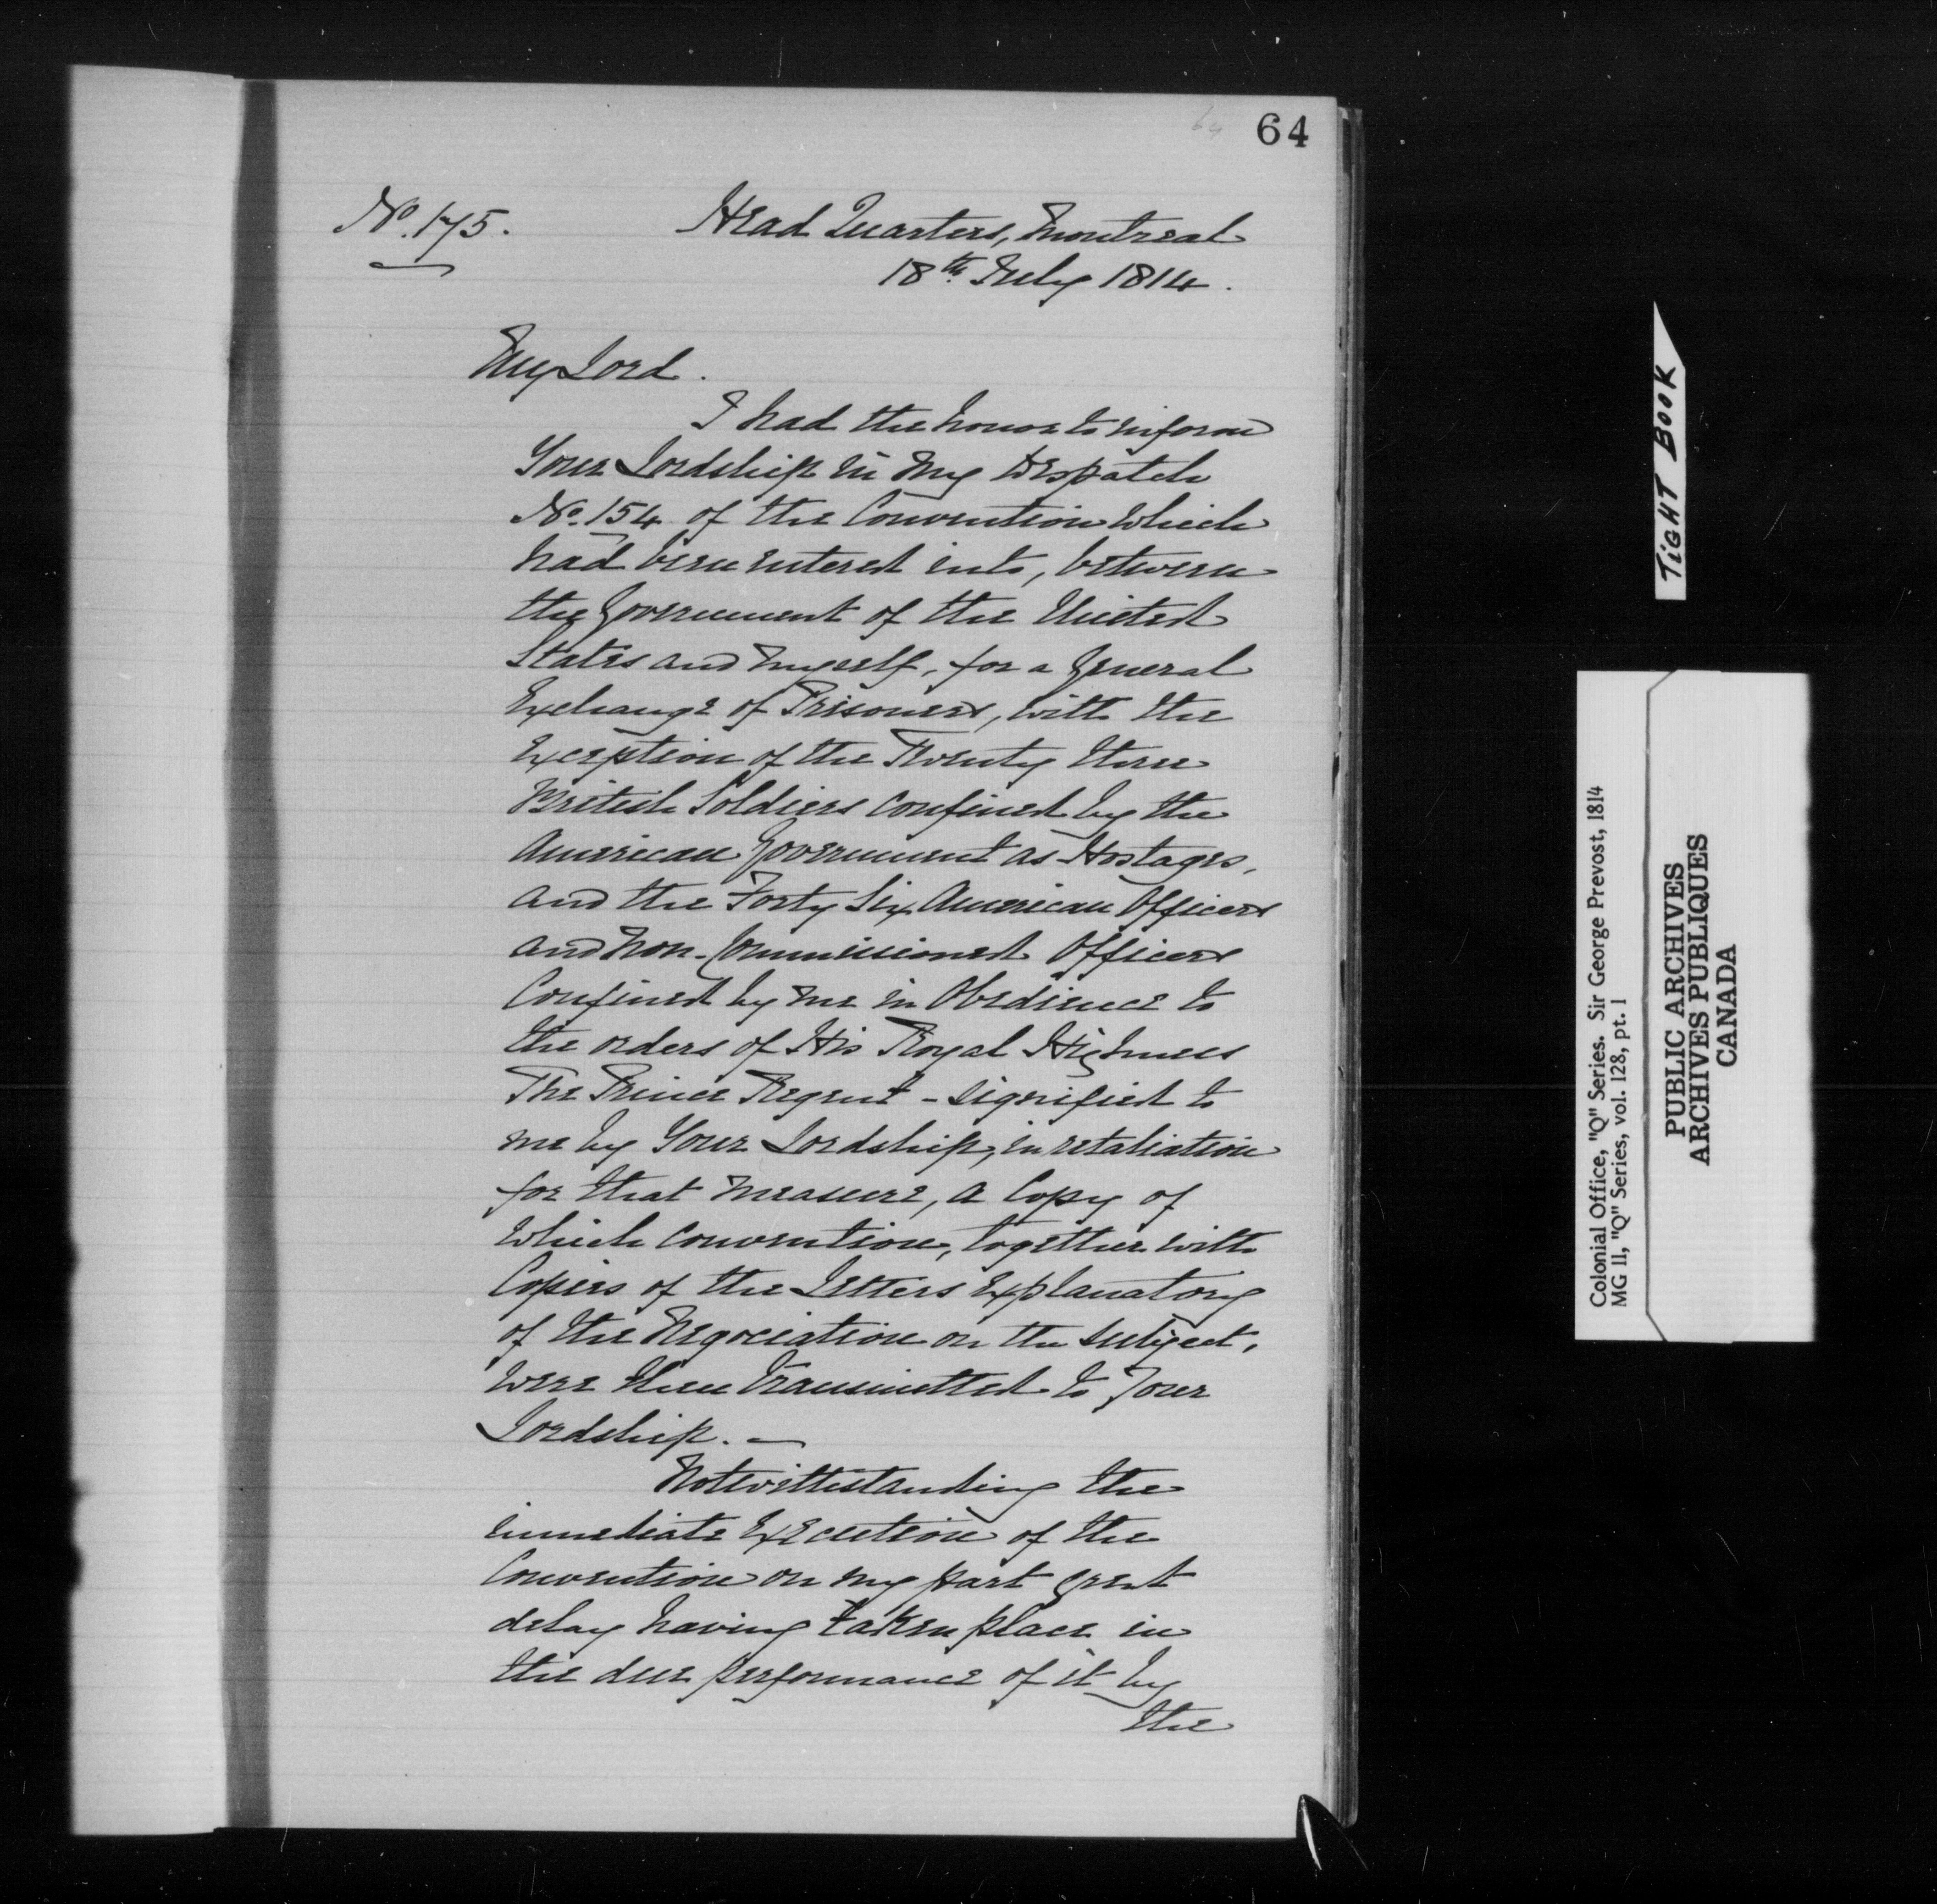 64
64
No. 175.
Head Quarters, Montreal
18th. July 1814.
My Lord.
I had the honor to inform
Your Lordship in my Despatch
No. 154 of the Convention which
had been entered into, between
the Government of the United
States and myself, for a General
Exchange of Prisoners, with the
Exception of the Twenty three
British Soldiers confined by the
American Government as Hostages,
and the Forty Six American Officers
and Non-Commissioned Officers
Confined by me in Obedience to
the orders of His Royal Highness
The Prince Regent - signified to
me by Your Lordship, in retaliation
for that measure, a Copy of
which convention, together with
Copies of the Letters Explanatory
of the Negociation on the subject,
were then transmitted to Your
Lordship. —
Notwithstanding the
immediate Execution of the
Convention on my part great
delay having taken place in
the due performance of it by
the
TiGHT BOOK
Colonial Office, "Q" Series. Sir George Prevost, 1814
MG 11, "Q" Series, vol. 128, pt. 1
PUBLIC ARCHIVES
ARCHIVES PUBLIQUES
CANADA